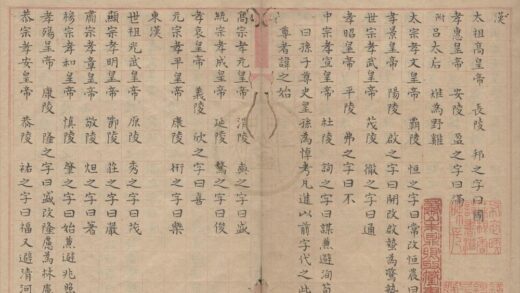 漢
太祖高皇帝 長陵 邦之字曰國
孝惠皇帝 安陵 盈之字曰滿
附呂太后 雉為野雞
太宗孝文皇帝 霸陵 恒之字曰常改恒農曰
孝景皇帝 陽陵 啟之字曰開改啟蟄為驚蟄
世宗孝武皇帝 茂陵 徹之字曰通
孝昭皇帝 平陵 弗之字曰不
中宗孝宣皇帝 杜陵 詢之字曰謀兼避洵荀
曰孫子尊史皇孫為悼考凡進以前字代之此
尊者諱之始
高宗孝元皇帝 渭陵 奭之字曰盛
統宗孝成皇帝 延陵 驁之字曰俊
孝哀皇帝 義陵 欣之字曰喜
元宗孝平皇帝 康陵 衎之字曰樂
東漢
世祖光武皇帝 原陵 秀之字曰茂
顯宗孝明皇帝 節陵 莊之字曰嚴
肅宗孝章皇帝 敬陵 炟之字曰著
穆宗孝和皇帝 慎陵 肇之字曰始兼避兆照
孝殤皇帝 康陵 隆之字曰盛改隆慮為林慮
恭宗孝安皇帝 恭陵 祜之字曰福又避清河